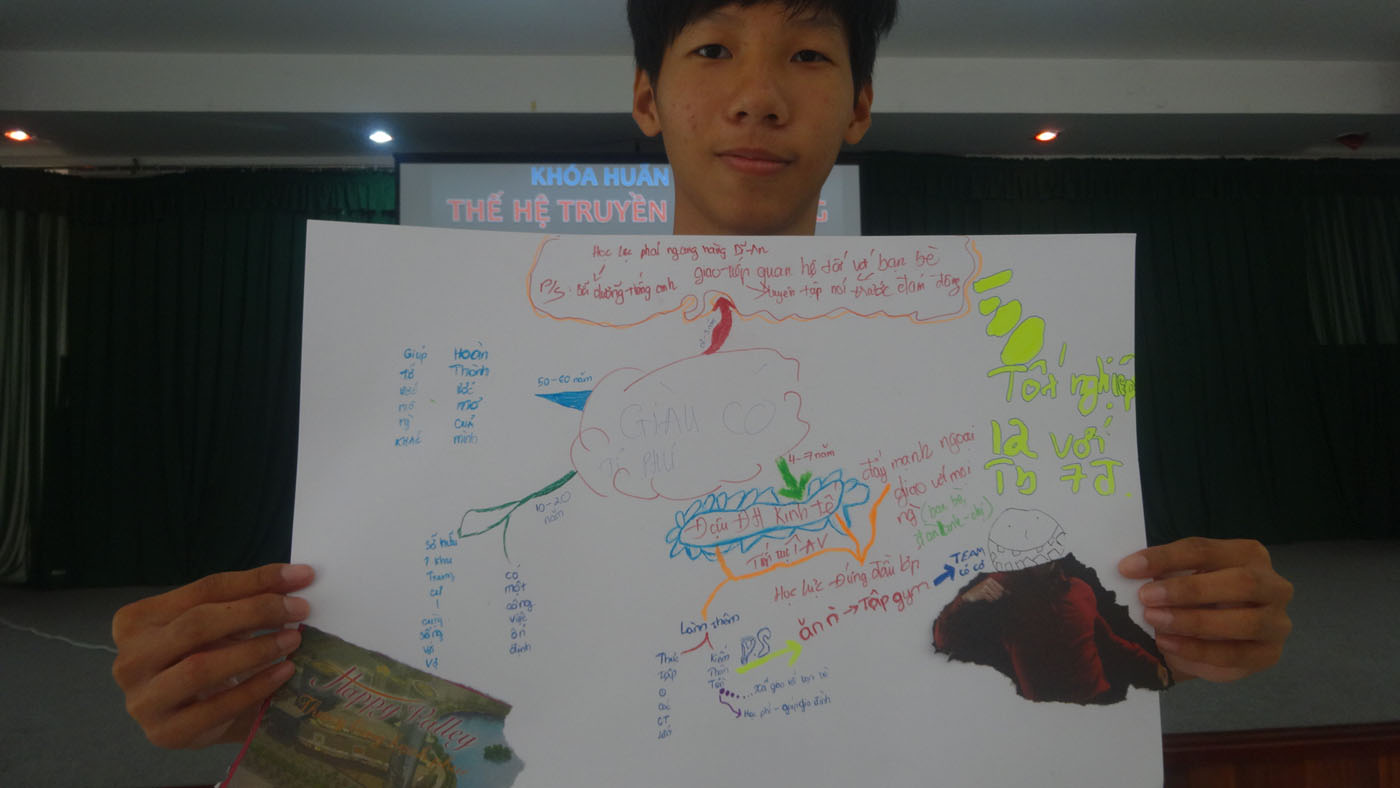 KHÓA HUẤN
THẾ HỆ TRUYỀN
G
Học lực phải ngang hàng Dĩ-An
P/S: Bồi dưỡng tiếng anh
giao tiếp quan hệ đối với bạn bè
luyện tập nói trước đám đông
Tốt nghiệp
12 với
Tb 7
Giúp
HOÀN
Thành
ƯỚC
mơ
CỦA
mình
KHÁC
50-60 năm
GIÀU CÓ
TỈ PHÚ
4-7 năm
Đậu ĐH Kinh tế
10-20
năm
đẩy mạnh ngoại
giao với mọi
ng (bạn bè,
anh-chị)
Học lực đứng đầu lớp
TEAM
ăn n → Tập gym
Làm thêm
P.S
Thực
Tập
CT
Kiếm
Tiền
bạn bè
Học phí - giúp gia đình
Sở hữu
1 khu
sống
với
Vợ
có
một
công
việc
ổn
định
Happy Valley